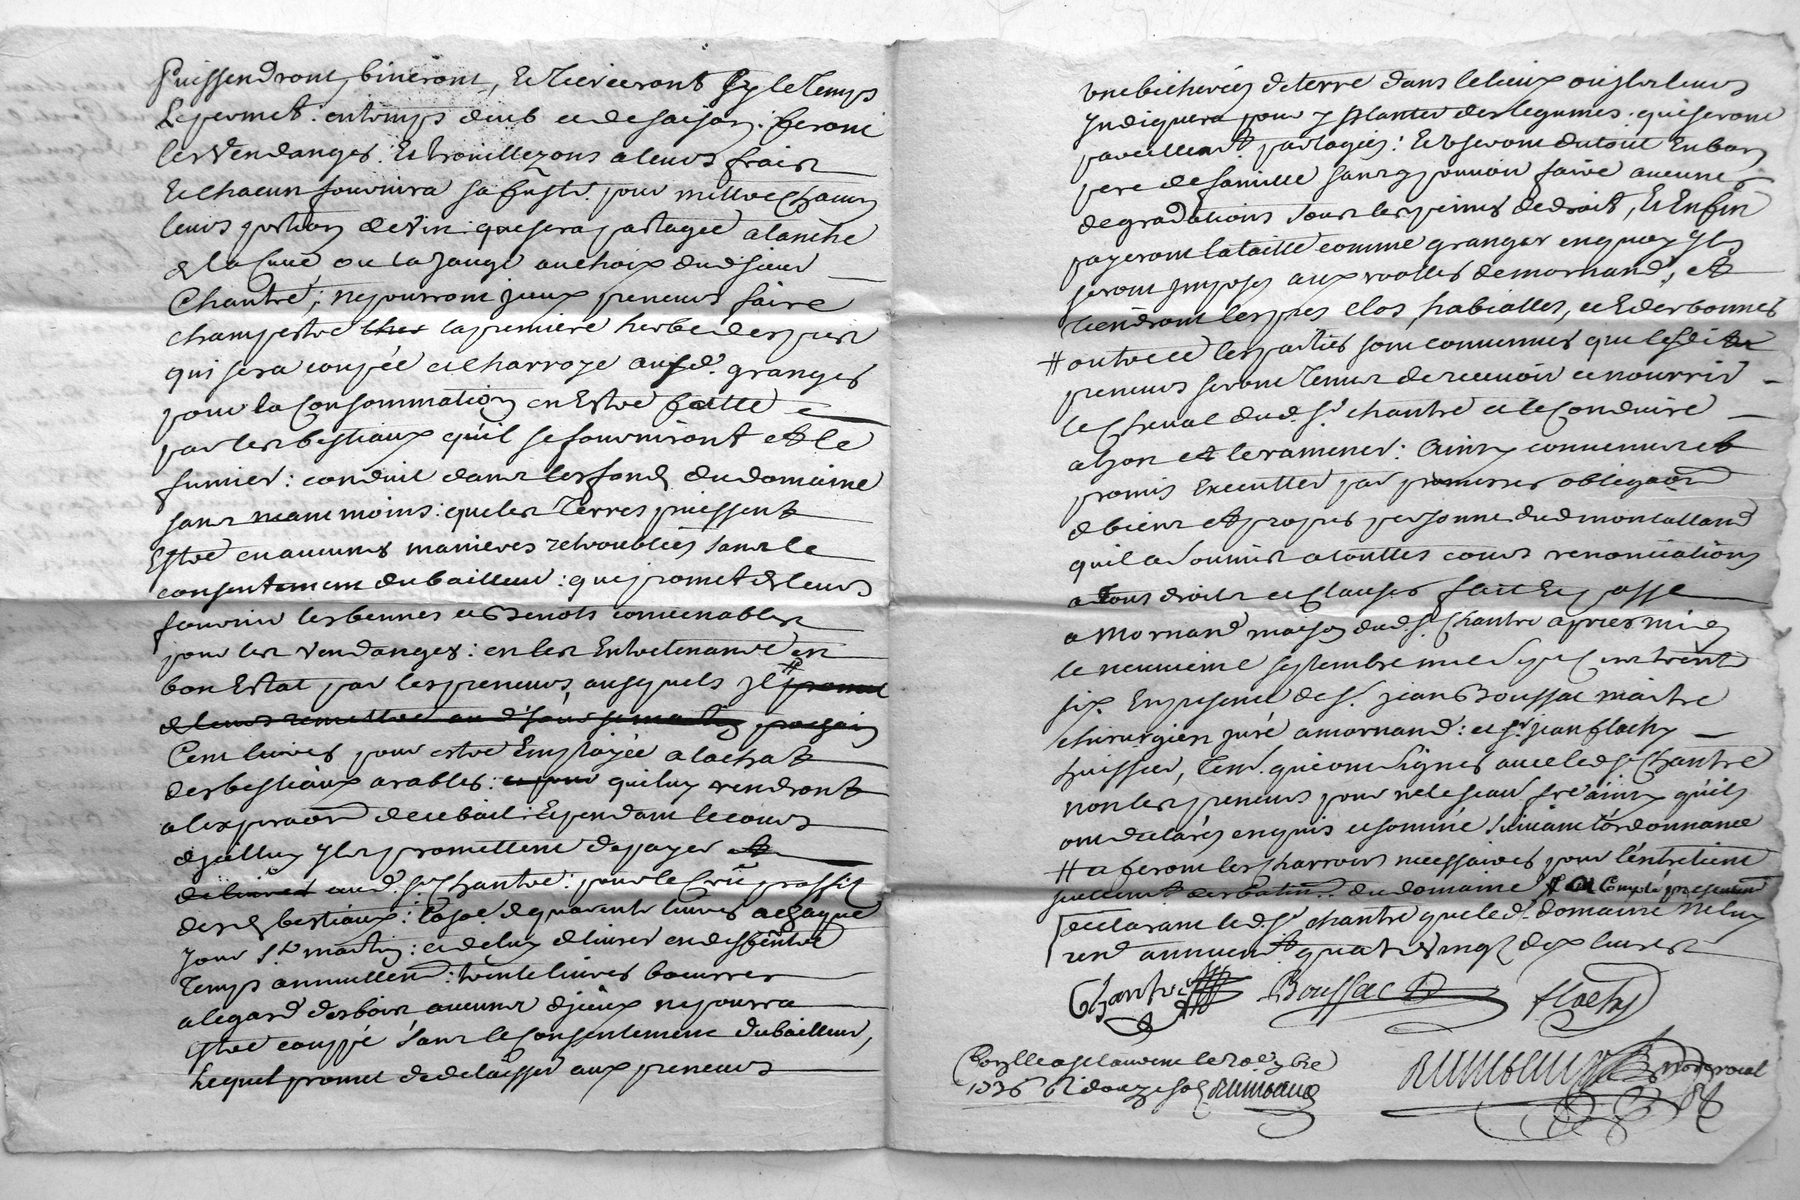 puissendront, bineront, et tierceront sy le temps
Le permet: en temps deub et de saison: feront
les vendanges. Et trouillezons a leurs frais
Et chacun fournira sa fuste pour mettre chacun
leurs portion de vin: que sera partagée a lanche
de la cuve ou la jauge au choix dud sieur
Chantre; ne pourront jceux preneurs faire
champestre la premiere herbe des prez
qui sera coupée et charroye ausd. granges
pour la Consommation en Estre faitte
par les bestiaux qu'il se fourniront et le
fumier: conduit dans les fonds du domaine
sans neanmoins: que les Terres puissent
Estre en aucunes manieres retroublées sans le
consentement du bailleur: que promet de leurs
fournir les bennes et benots convenables
pour les vendanges: en les Entretenant en
bon Estat par les preneurs, ausquels jl # promet
de leurs remettre au d. jour st martin prochain
Cent livres pour estre Employée a lachat
des bestiaux arables: que luy rendront
a lexpiraon de ce bail: Et pendant le cours
d'jcelluy jls promettent de payer
aud. sr. Chantre: pour le croit proffit
desd. bestiaux: la so. de quarante livres a chaque
jour st. martin: et de luy delivrer en des fentre
Temps annuellemt: trente livres beurres
a legard des bois aucuns d'jceux ne pourra
estre couppé sans le Consentement du bailleur,
Lequel promet de delaisser aux preneurs
une bicherée de terre dans le lieux ou jl leurs
jndiquera pour y planter des legumes: qui seront
pareillemt. partagés: Et useront du tout En bon
pere de famille sans y pouvoir faire aucune
degradations sous les peines de droit, Et Enfin
payeront la taille comme granger en quoy jls
seront jmposés aux roolles de mornand, et
tiendront les prés clos, habialles, et Ederbonnés
# outre ce les parties sont convenues que lesdits
preneurs seront Tenus de recevoir et nourrir
le Cheval dud. sr. chantre et le Conduire
a lyon et le ramener: Ainsy convenu et
promis Executter par promesses obligaon
de biens et propres personne dud montalland
qu'il a soumis a touttes cours renonciations
a Tous droits et clauses fait Et passé
a Mornand maison dud. sr. Chantre apres midy
le neuvieme septembre mil sept cens trente
six. En presence de sr. jean Boussac maitre
chirurgien juré a mornand: et sr. jean flachy
huissier, Tem. qui ont signés avec led. sr. Chantre
non les preneurs pour ne le scavoir faire ainsy qu'ils
ont declarés enquis et sommé suivant l'ordonnance
# et feront les charrois necessaires pour l'entretient
seullemt. des batim. du domaine
declarant led. sr. chantre que led. domaine ne luy
rend annuemt. quatre vingt dix livres
Chantre Boussac flachy
Conllé a st laurent le 20e. 7bre
1736 R. douze sols Rimbaud
Rimbaud no.re royal